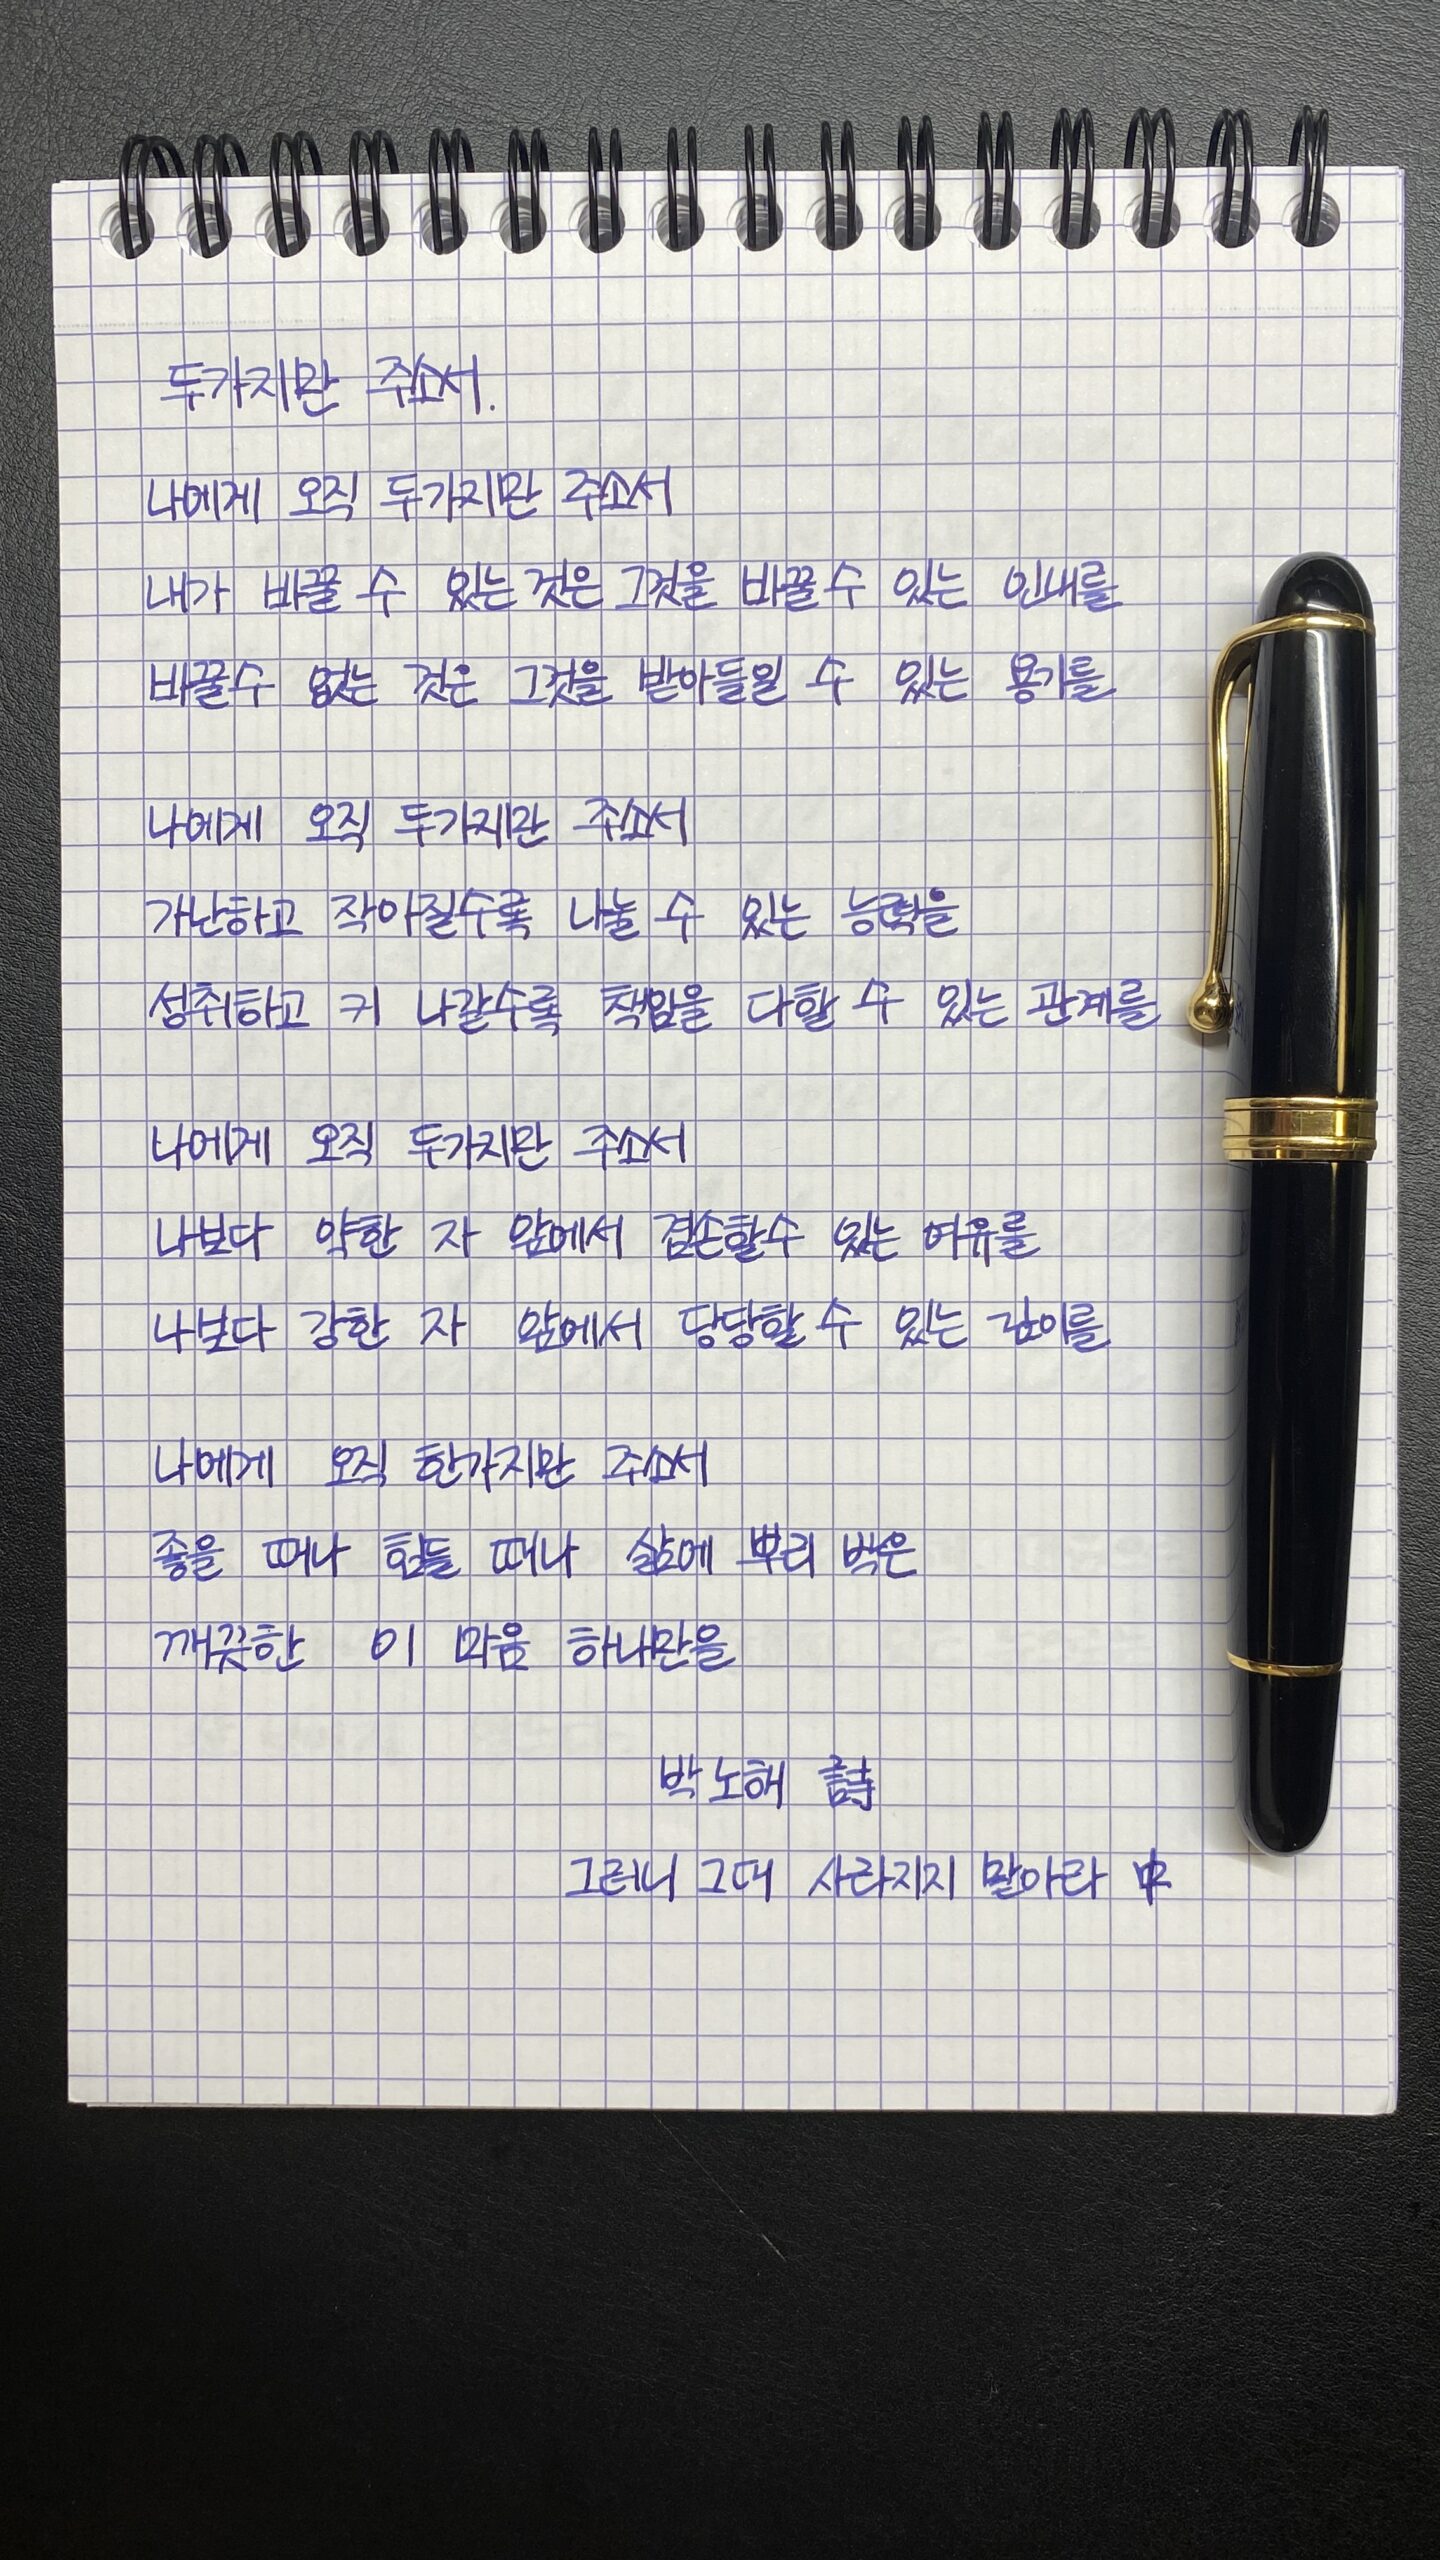 두가지만 주소서.
나에게 오직 두가지만 주소서
내가 바꿀 수 있는 것은 그것을 바꿀수 있는 인내를
바꿀수 없는 것은 그것을 받아들일 수 있는 용기를
나에게 오직 두가지만 주소서
가난하고 작아질수록 나눌 수 있는 능력을
성취하고 커 나갈수록 책임을 다할 수 있는 관계를
나에게 오직 두가지만 주소서
나보다 약한 자 앞에서 겸손할수 있는 여유를
나보다 강한 자 앞에서 당당할 수 있는 깊이를
나에게 오직 한가지만 주소서
좋을 때나 힘들 때나 삶에 뿌리 박은
깨끗한 이 마음 하나만을
박노해 詩
그러니 그대 사라지지 말아라 中